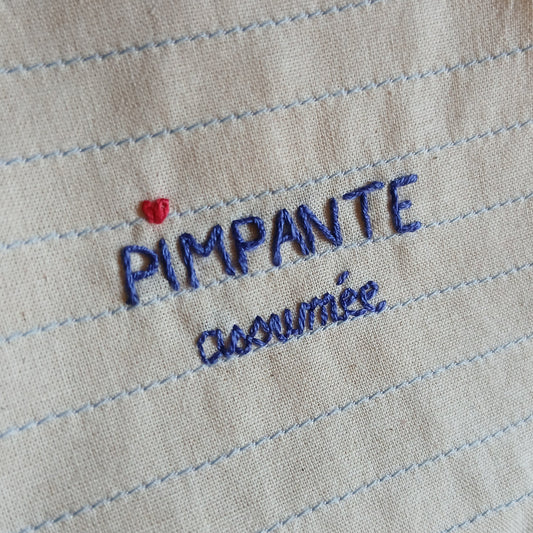 PIMPANTE
assumée